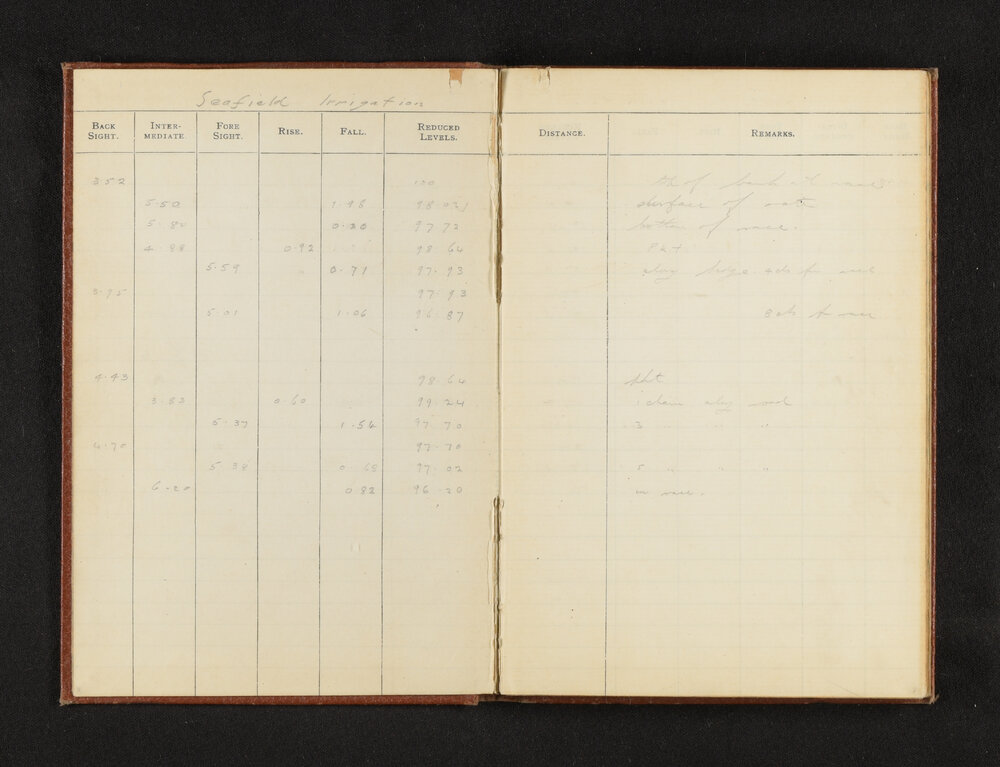 Seafield Irrigation
BACK SIGHT. INTER-MEDIATE. FORE SIGHT. RISE. FALL. REDUCED LEVELS. DISTANCE. REMARKS.
3.52 100 of bank
5.50 1.98 98.02 surface of
5.80 0.30 97.72 bottom of race.
4.88 0.92 98.64 Pet
5.59 0.71 97.93
3.95 97.93
5.01 1.06 96.87 race
4.43 98.64
3.83 0.60 99.24 1 chain along road
5.37 1.54 97.70 3 " " "
4.70 97.70
5.38 0.68 97.02 5 " " "
6.20 0.82 96.20 race.